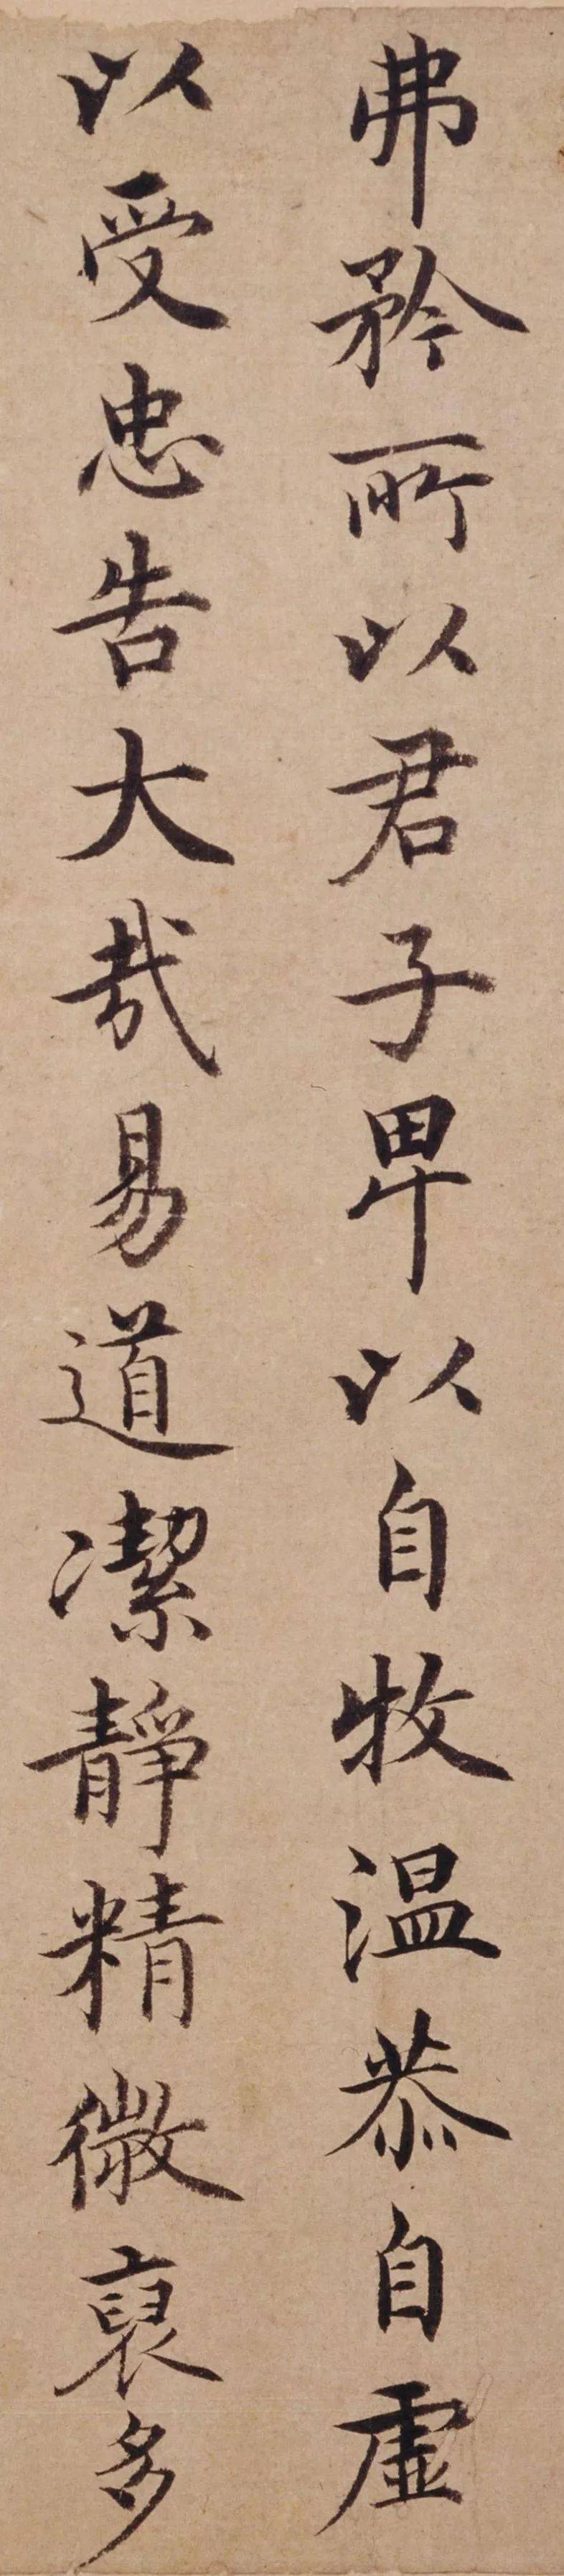 弗矜所以君子卑以自牧温恭自虚
以受忠告大哉易道潔靜精微裒多